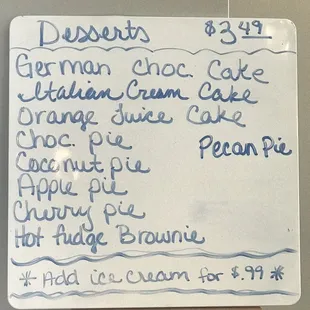 Desserts $3.49
German Choc. Cake
Italian Cream Cake
Orange Juice Cake
Choc. pie
Pecan Pie
Coconut pie
Apple pie
Cherry pie
Hot fudge Brownie
* Add ice cream for $.99 *